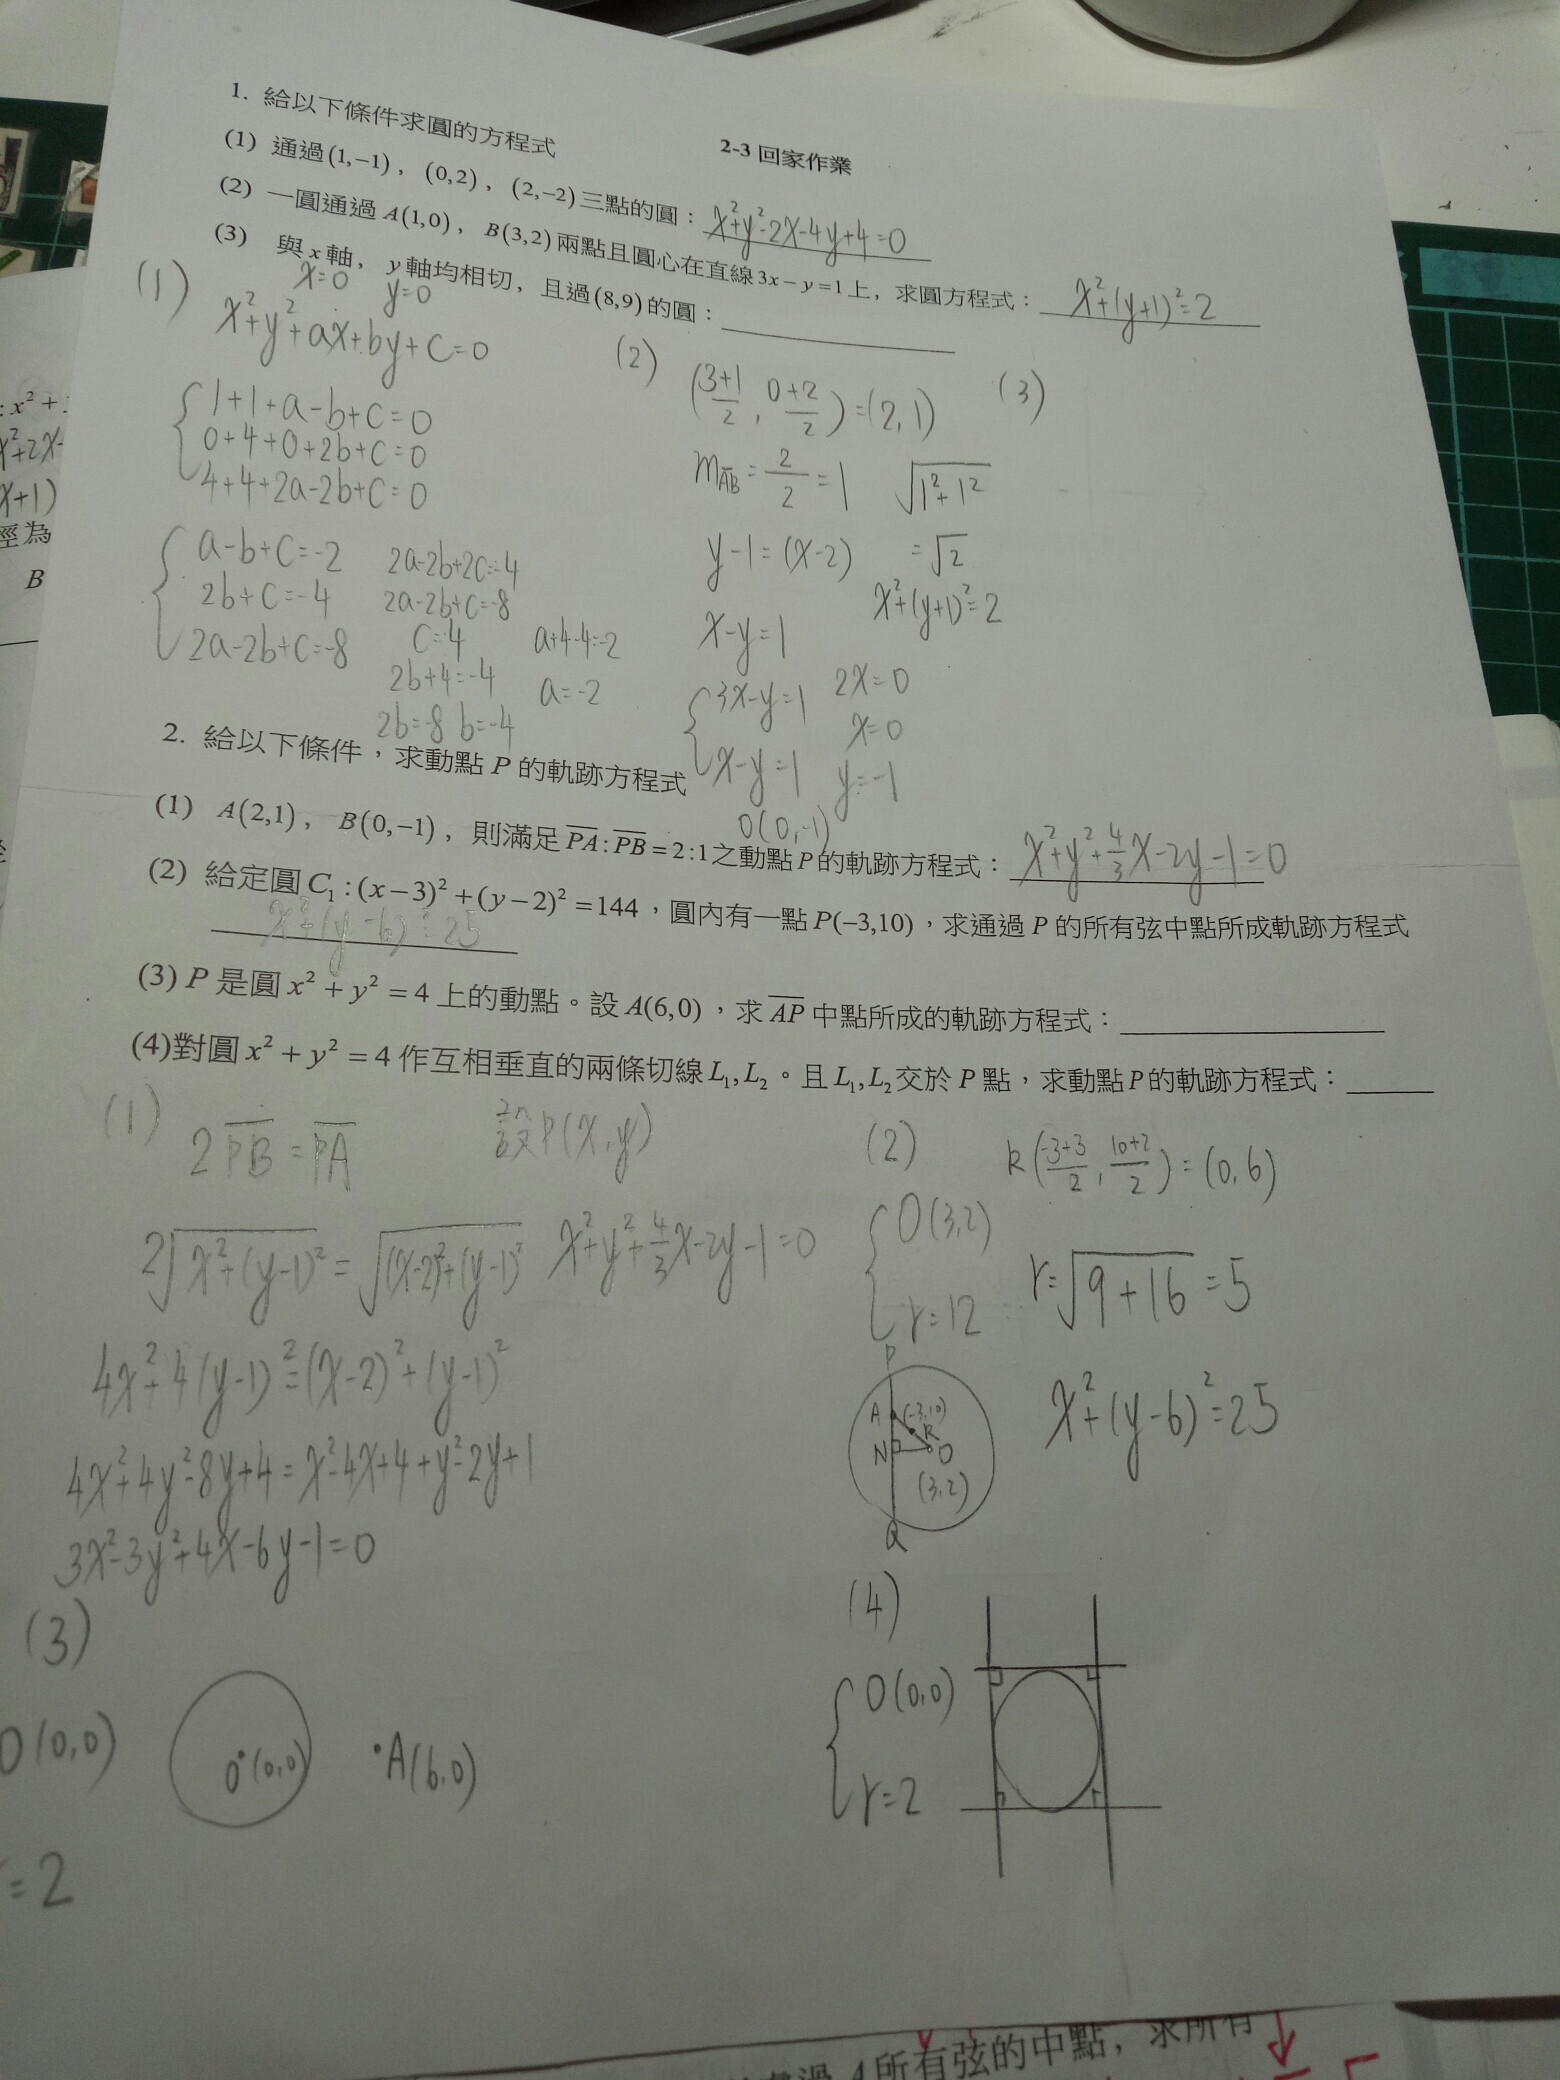 2-3 回家作業
1. 給以下條件求圓的方程式
(1) 通過(1,−1), (0,2), (2,−2)三點的圓: x²+y²-2x-4y+4=0
(2) 一圓通過 A(1,0), B(3,2)兩點且圓心在直線3x−y=1上, 求圓方程式: x²+(y+1)²=2
(3) 與 x 軸, y 軸均相切, 且過(8,9)的圓:
x=0 y=0
(1)
x²+y²+ax+by+c=0
1+1+a-b+c=0
0+4+0+2b+c=0
4+4+2a-2b+c=0
a-b+c=-2
2b+c=-4
2a-2b+c=-8
2a-2b+2c=-4
2a-2b+c=-8
c=4
2b+4=-4
2b=-8 b=-4
a+4+4=-2
a=-2
(2)
(3+1/2, 0+2/2)=(2,1)
mAB=2/2=1
y-1=(x-2)
x-y=1
3x-y=1
x-y=1
2x=0
x=0
y=-1
O(0,-1)
√1²+1²
=√2
x²+(y+1)²=2
(3)
2. 給以下條件，求動點 P 的軌跡方程式
(1) A(2,1), B(0,−1), 則滿足PA:PB=2:1之動點P的軌跡方程式: x²+y²+4/3x-2y-1=0
(2) 給定圓C₁:(x−3)²+(y−2)²=144，圓內有一點P(−3,10)，求通過 P 的所有弦中點所成軌跡方程式
x²+(y-6)²=25
(3) P 是圓 x²+y²=4 上的動點。設 A(6,0)，求 AP 中點所成的軌跡方程式：
(4)對圓 x²+y²=4 作互相垂直的兩條切線 L₁,L₂。且 L₁,L₂ 交於 P 點，求動點P的軌跡方程式：
(1)
2PB=PA
設P(x,y)
2√x²+(y-1)²=√(x-2)²+(y-1)²
x²+y²+4/3x-2y-1=0
4x²+4(y-1)²=(x-2)²+(y-1)²
4x²+4y²-8y+4=x²-4x+4+y²-2y+1
3x²-3y²+4x-6y-1=0
(2)
O(3,2)
r=12
R(-3+3/2, 10+2/2)=(0,6)
r=√9+16=5
x²+(y-6)²=25
P
A (-3,10)
R
N O
(3,2)
Q
(3)
O(0,0)
=2
O(0,0)
A(6,0)
(4)
O(0,0)
r=2
x²+
x²+2x-
x+1)
徑為
B
所有弦的中點，求所有